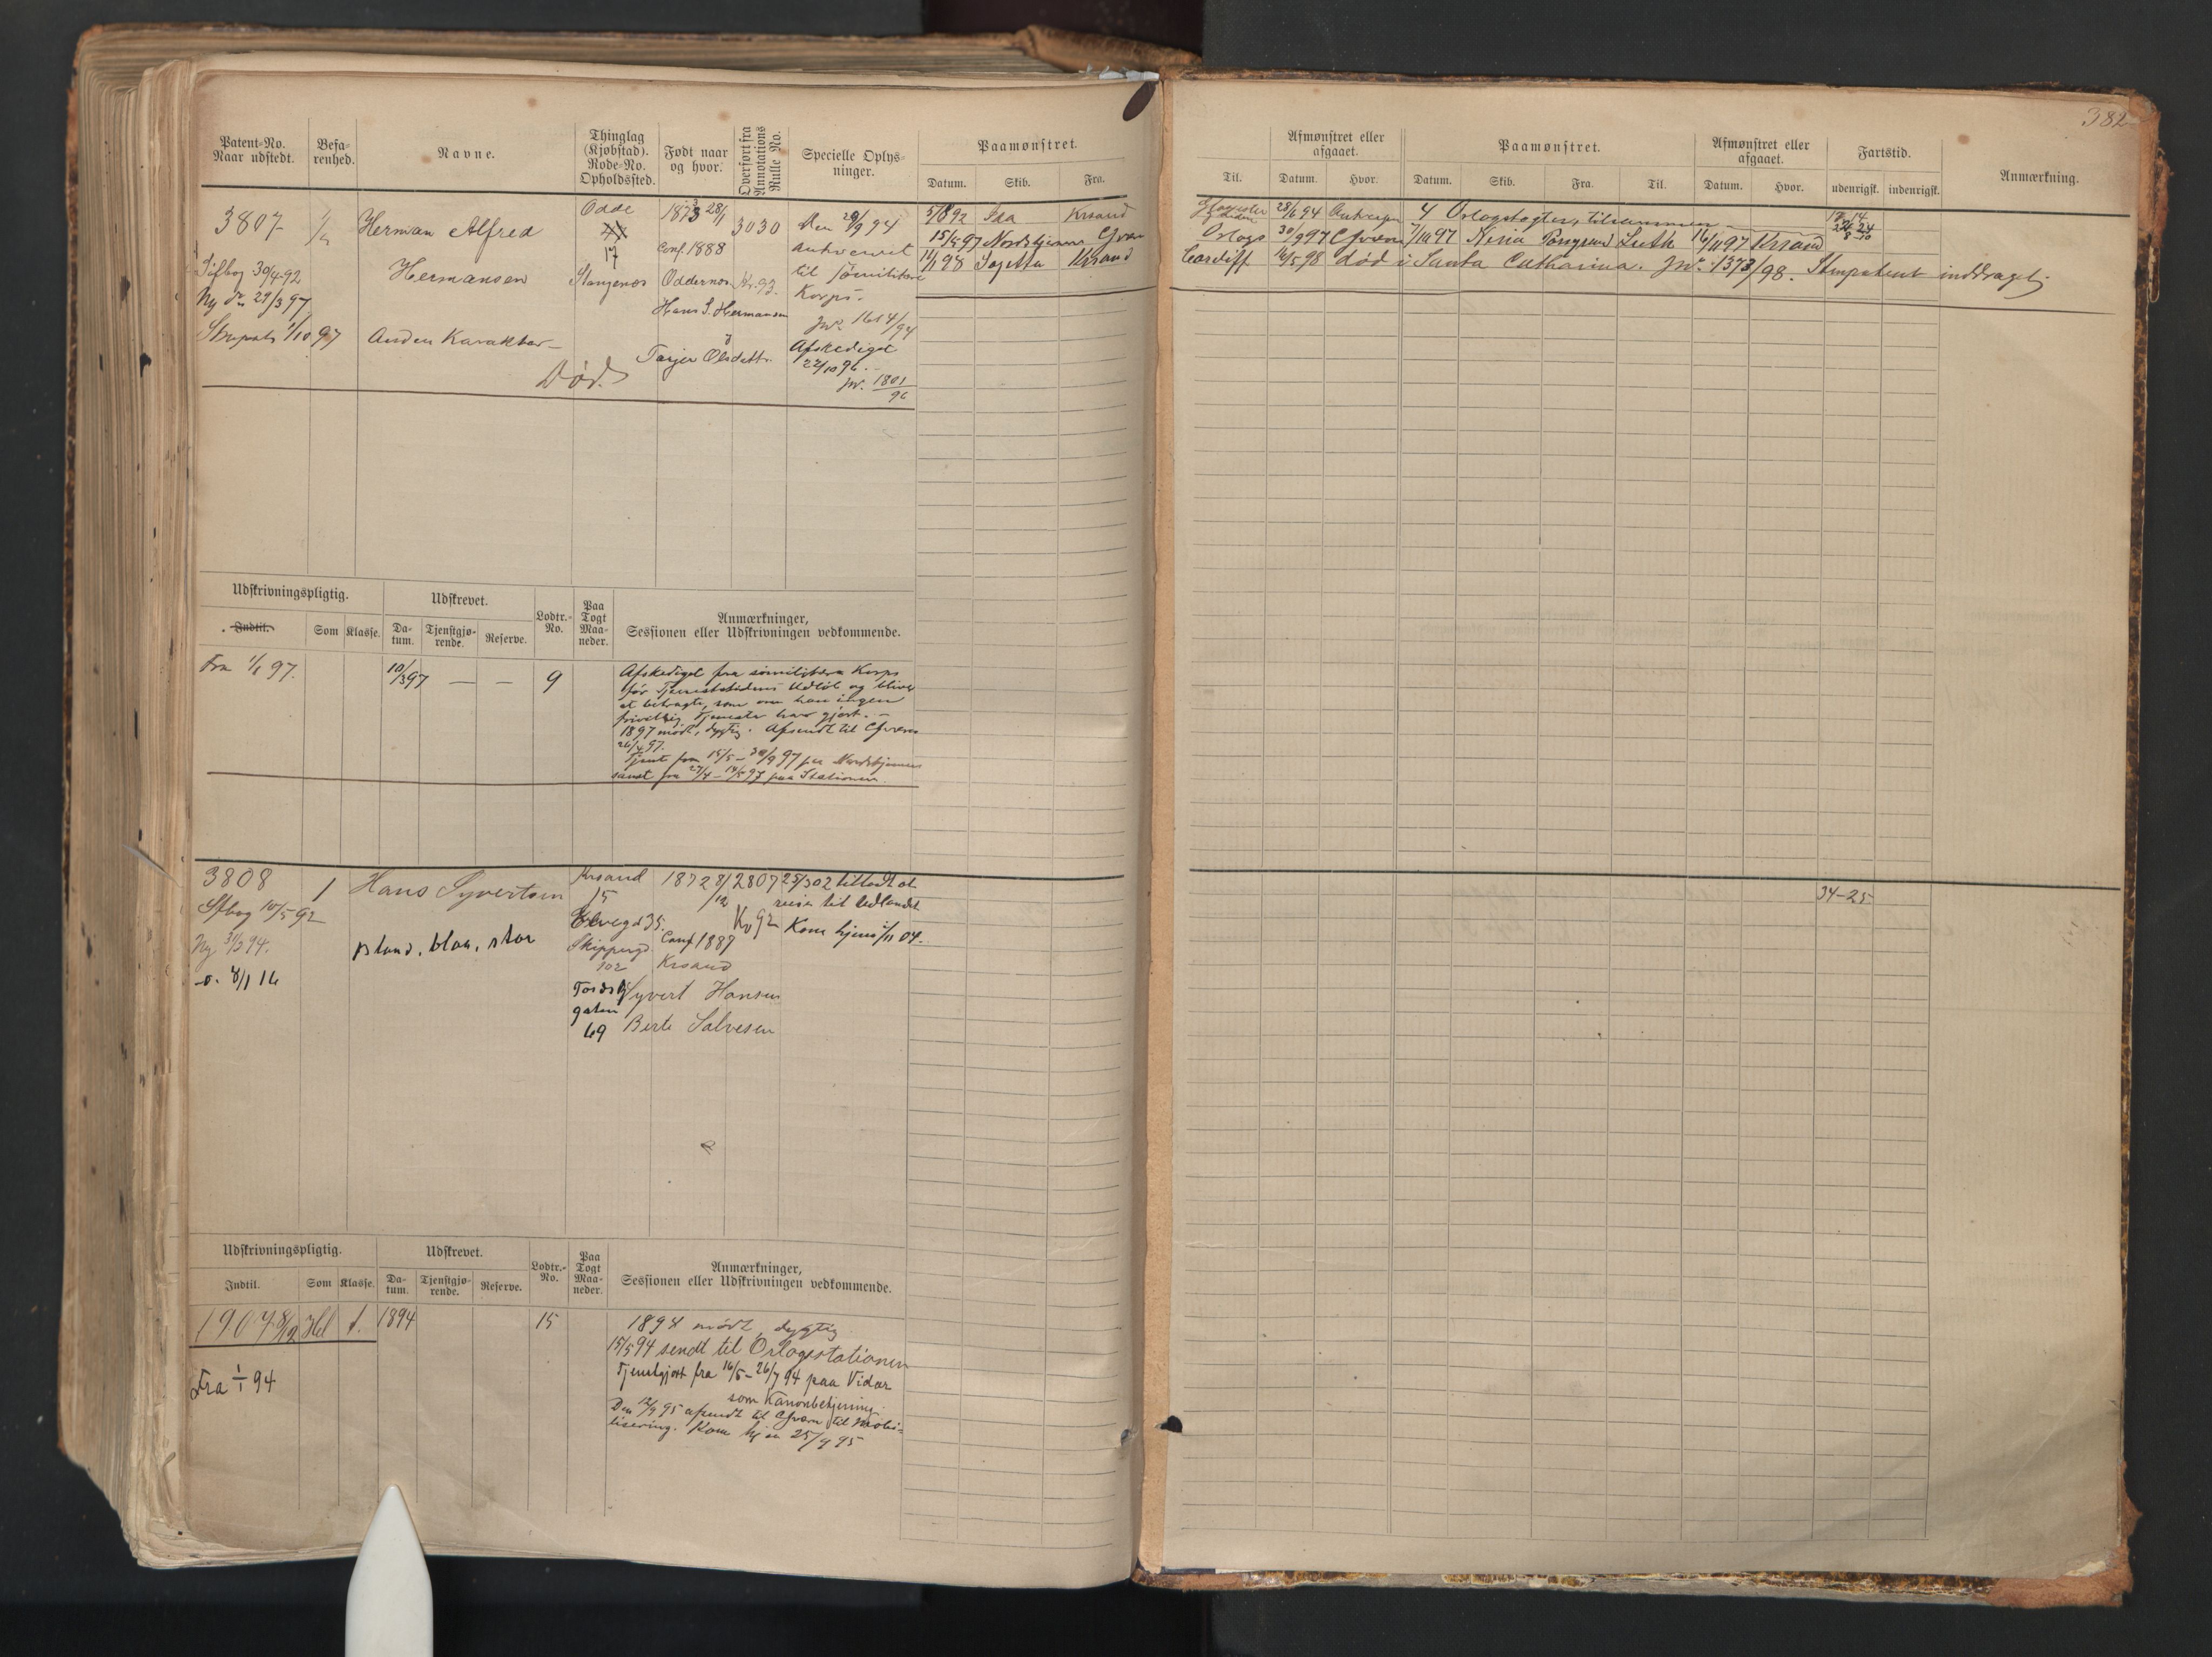 382
Patent-No. Naar udstedt.
Befarenhed.
Navne.
Thinglag (Kjøbstad). Rode-No. Opholdssted.
Født naar og hvor.
Overført fra Annotations Rulle No.
Specielle Oplysninger.
Paamønstret.
Datum. Skib. Fra.
Til.
Afmønstret eller afgaaet.
Datum. Hvor.
Paamønstret.
Datum. Skib. Fra. Til.
Afmønstret eller afgaaet.
Datum. Hvor.
Fartstid.
udenrigsk. indenrigsk.
Anmærkning.
3807 1/2 Herman Alfred
Hermansen
Anden Karakter
Død.
Søfbog 30/4-92
Ny do 29/3 97
Strpat. 1/10 97
Odde
17
Stangenes
1873 28/1
Conf. 1888
Oddernes
Hans S. Hermansen
Tarjer Olsdatt.
3030
Kr. 93.
Den 29/9 94
antvervet
til sømilitære
Korps.
JNo 1614/94
Afskediget
22/10 96.
JN. 1801/96
5/8 92 Ida Krsand
15/5 97 Nordstjernen
11/1 98 Sagitta Krsand
28/6 94 4 Orlogstogter, tilsammen
Orlogs 30/9 97 7/10 97 16/11 97 Krsand
Cardiff 16/5 98 død i Santa Catharina. JNo. 1373/98. Strpatent inddraget.
Udskrivningspligtig.
Indtil. Som Klasse.
Udskrevet.
Datum. Tjenstgjørende. Reserve.
Lodtr.-No.
Paa Togt Maaneder.
Anmærkninger,
Sessionen eller Udskrivningen vedkommende.
Fra 1/1 97. 10/3 97 — — 9
Afskediget fra sømilitære Korps
før Tjenestetidens Udløb og bliver
at betragte, som om han ingen
frivillig Tjeneste har gjort. –
1897 mødt, dygtig. Afsendt til Chværn
26/4 97.
Tjent fra 15/5 – 30/9 97 paa Nordstjernen
samt fra 27/4 – 14/5 97 paa Stationen.
3808 1 Hans Syvertsen
Sfbog 10/5 92
Ny 31/3 94.
-o. 8/1 16
blond, blaa, stor
Krsand
15
Elvegd 35.
Skipperg.
102
Tordskj
gaten
49
1872 8/12
Conf 1887
Krsand
Syvert Hansen
Berte Salvesen
2807
Kv 92
25/3 02 tilladt at
reise til Udlandet
Kom hjem 1/11 04.
34-25
Udskrivningspligtig.
Indtil. Som Klasse.
Udskrevet.
Datum. Tjenstgjørende. Reserve.
Lodtr.-No.
Paa Togt Maaneder.
Anmærkninger,
Sessionen eller Udskrivningen vedkommende.
1907 8/12 Hel 1. 1894 15
Fra 1/1 94
1894 mødt, dygtig
15/5 94 sendt til Orlogsstationen
Tjenstgjort fra 16/5 – 26/7 94 paa Vidar
som Kanonbetjening.
Den 12/9 95 afsendt til Chværn til Mobilisering. Kom hjem 25/9 95